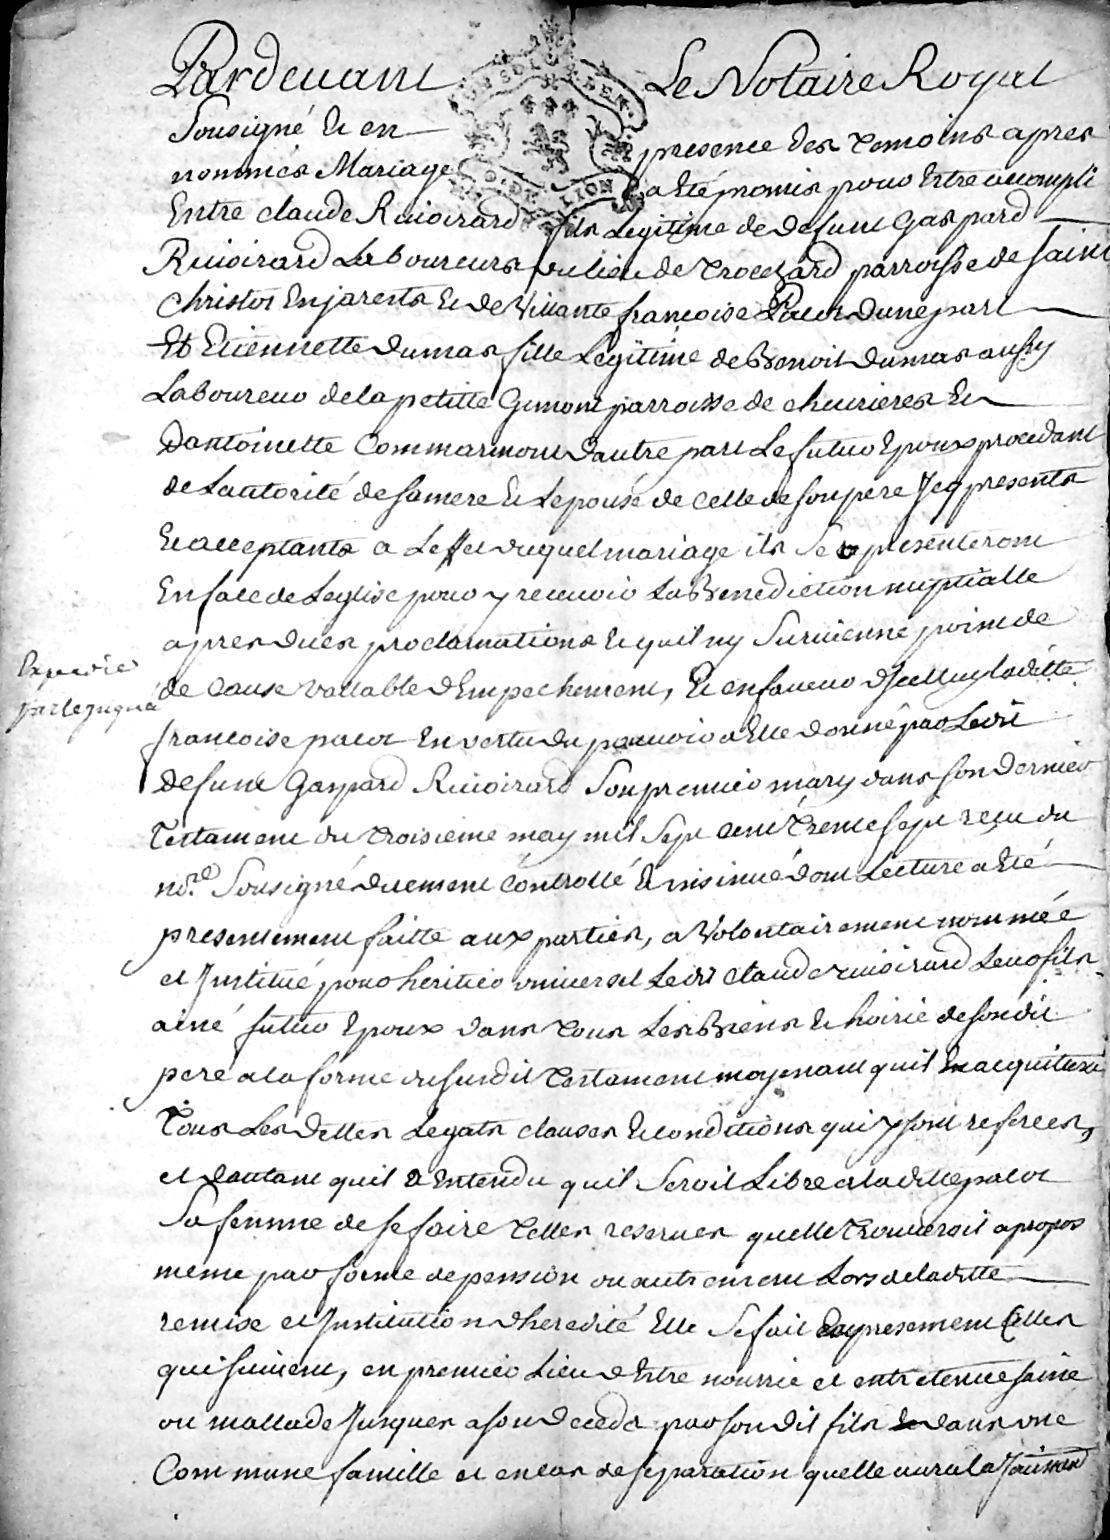 Pardevant Le Notaire Royal
Sousigné et en presence des temoins apres
nommés Mariage a eté promis pour Estre accompli
Entre claude Rivoirard fils Legitime de defunt Gaspard
Rivoirard Laboureurs du lieu de parroisse de saint
christot Enjarests et de Vivante francoise Pacot Dune part
Et Etiennette dumas fille Legitime de Benoit dumas aussy
Laboureur de la petitte Gimont parroisse de chevrieres Et
Dantoinette Commarmont Dautre part Le futur Epoux procedant
de Lautorité de sa mere et Lepouse de celle de son pere Icy presents
et acceptants a Leffet duquel mariage ils Se presenteront
En face de Leglise pour y recevoir La Benediction nuptialle
apres dues proclamations et quil ny Survienne point de
de cause vallable dEmpechement, Et en faveur dIcelluy laditte
francoise pacot En vertu du pouvoir a Elle donné par Ledit
defunt Gaspard Rivoirard Son premier mary dans son Dernier
Testament du troisieme may mil Sept cent trente sept reçu du
no.re Sousigné duement Controllé et insinué dont Lecture a Eté
presentement faitte aux parties, a Volontairement nommée
et Institué pour heritier universel Ledit claude rivoirard Leur fils
ainé futur Epoux dans tous Les Biens et hoirie de son dit
pere a la forme du susdit testament moyenant quil En acquittera
Tous Les dettes Legats clauses et conditions qui y sont referées,
et dautant quil a Entendu quil Seroit Libre a laditte pacot
Sa femme de se faire telles reserves quelle trouveroit apropos
meme par forme de pension ou autrement Lors de laditte
remise et Institution dheredité Elle Se fait Expresement Celles
qui suivent, en premier Lieu dEstre nourrie et entretenue saine
ou mallade Jusques a son decéds par son dit fils et dans une
Commune famille et en cas de separation quelle aura la
Expedié